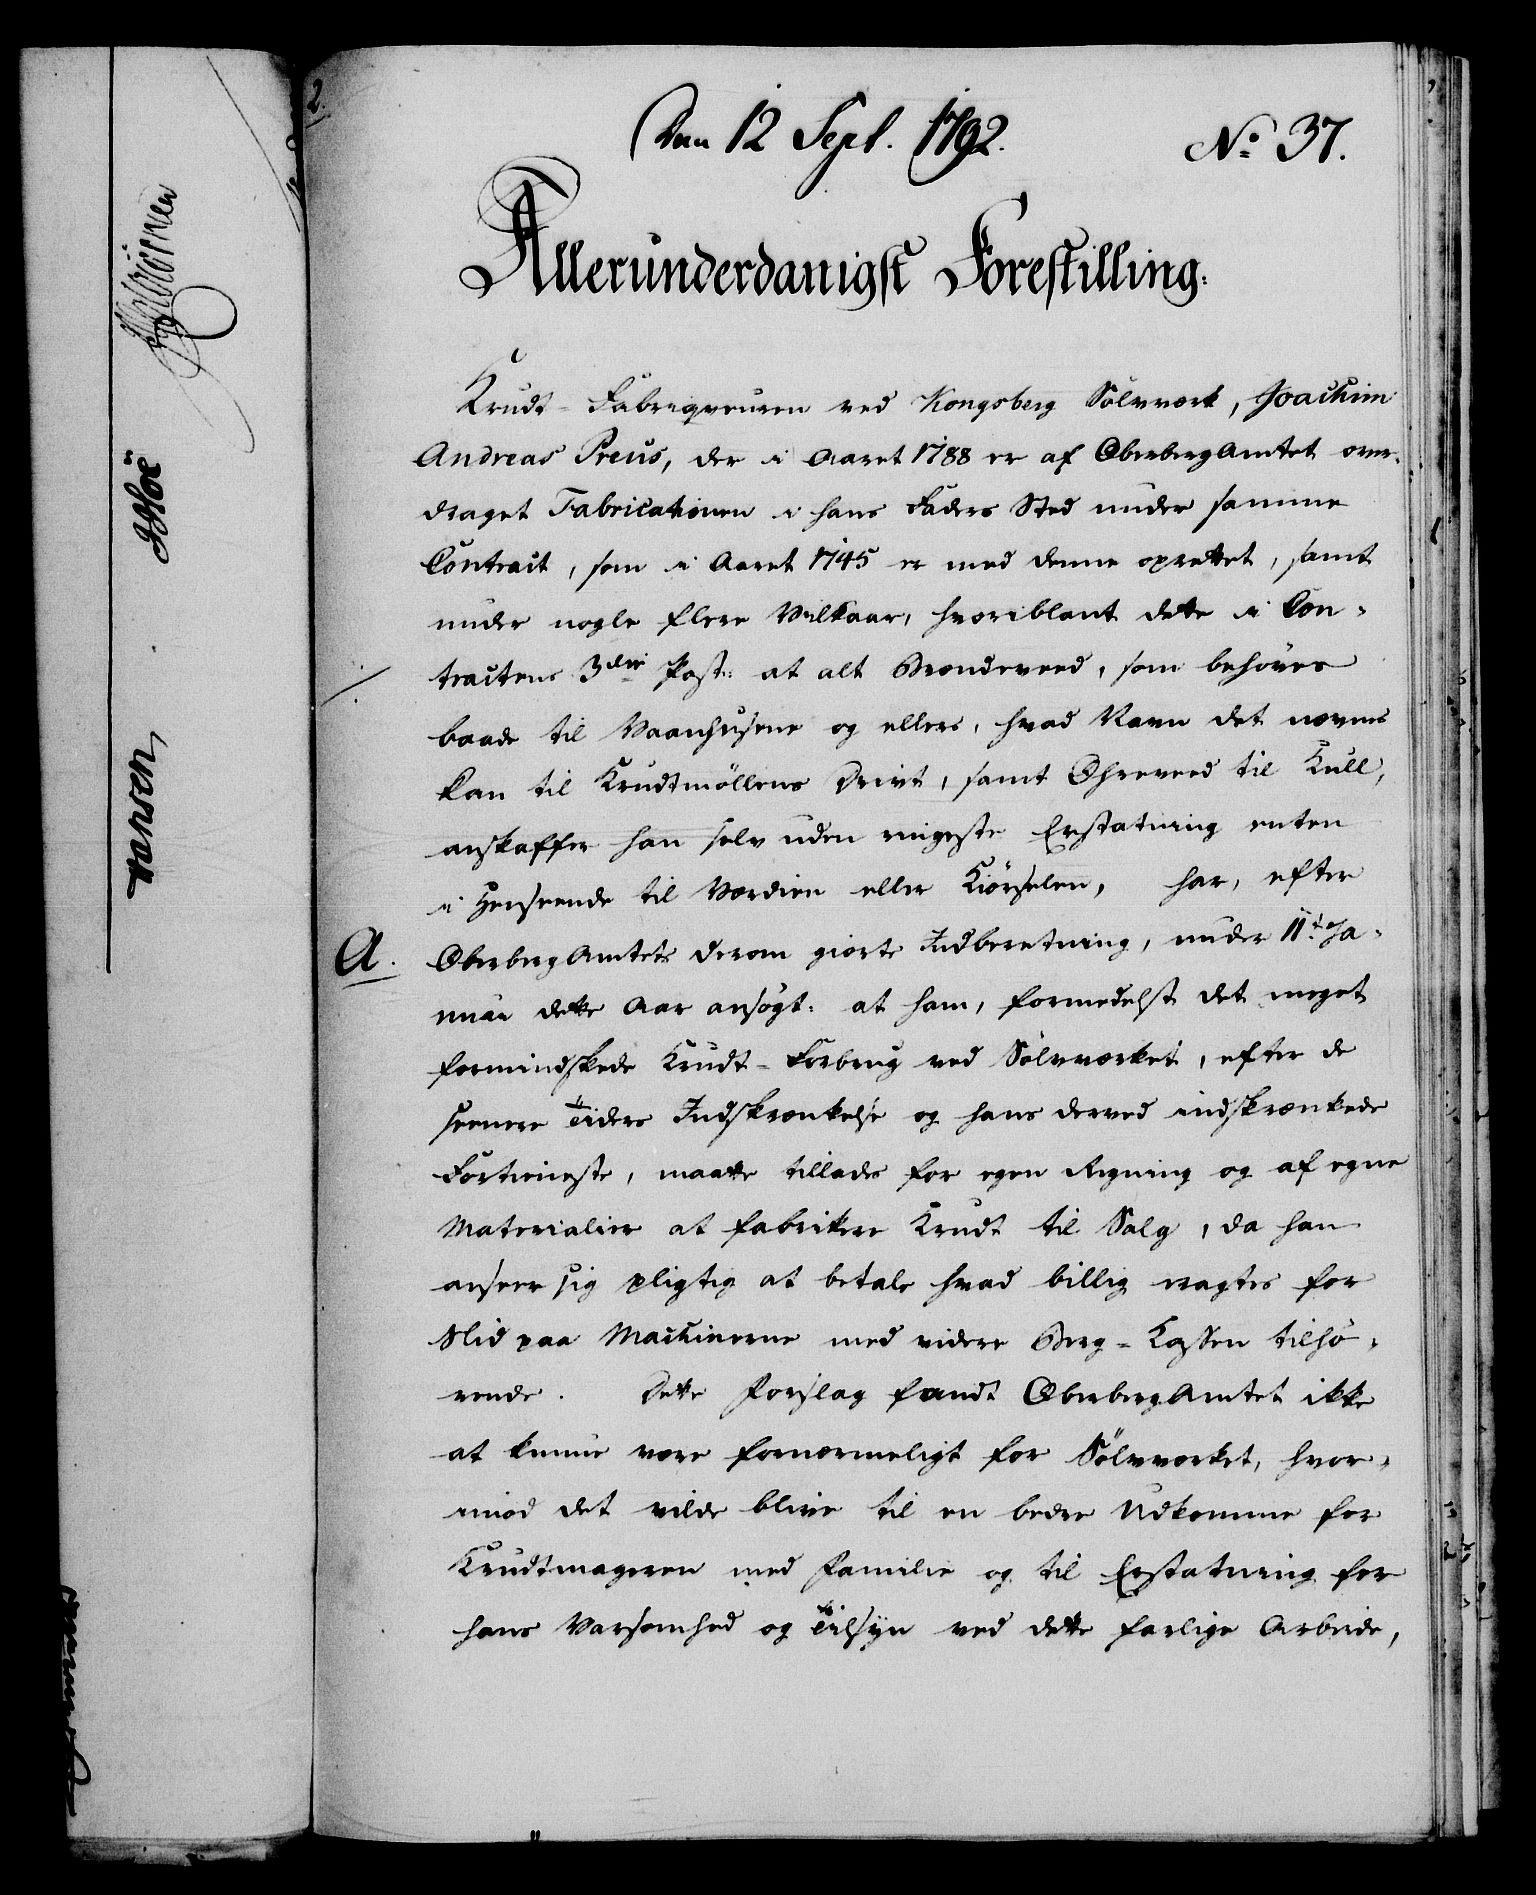 Den 12 Sept. 1792.
No 37.
Allerunderdanigst Forestilling:
Krudt-Fabriqveuren ved Kongsberg Sölvværk, Joachim
Andreas Preus, der i Aaret 1788 er af OberbergAmtet over-
draget Fabricationen i hans Faders Sted under samme
Contract, som i Aaret 1745 er med denne oprettet, samt
under nogle flere Vilkaar, hvoriblant dette i Con-
tractens 3die Post: at alt Brændeveed, som behöves
baade til Vaanhusene og ellers, hvad Navn det nævnes
kan til Krudtmöllens Drivt, samt Ohreveed til Kull,
anskaffer han selv uden ringeste Erstatning enten
i Henseende til Værdien eller Kiörselen, har, efter
A.
OberbergAmtets derom giorte Indberetning, under 11t Ja-
nuar dette Aar ansögt: at ham, formedelst det meget
formindskede Krudt-Forbrug ved Sölvværket, efter de
seenere Tiders Indskrænkelse og hans derved indskrænkede
Fortieneste, maatte tillades for egen Regning og af egne
Materialier at fabrikere Krudt til Salg, da han
anseer sig pligtig at betale hvad billig eragtes for
Slid paa Machinerne med videre Berg-Kassen tilhö-
rende. Dette Forslag fandt OberbergAmtet ikke
at kunne være fornærmeligt for Sölvværket, hvor-
imod det vilde blive til en bedre Udkomme for
Krudtmageren med Familie og til Erstatning for
hans Varsomhed og Tilsyn ved dette farlige Arbeide,